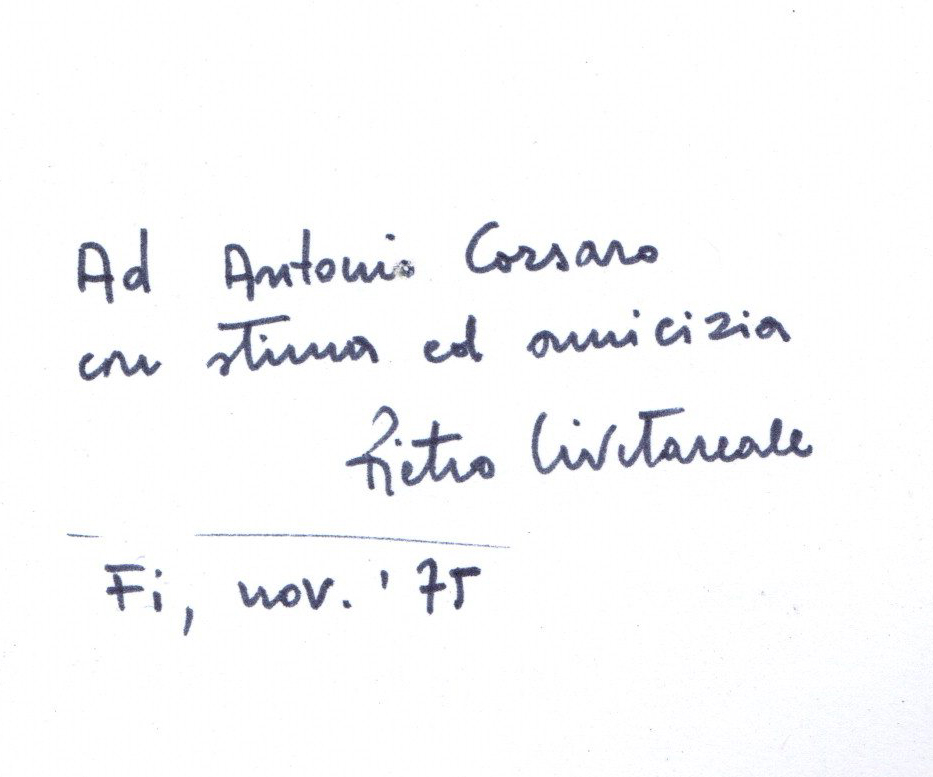 Ad Antonio Corsaro
con stima ed amicizia
Pietro Civitareale
Fi, nov. '75